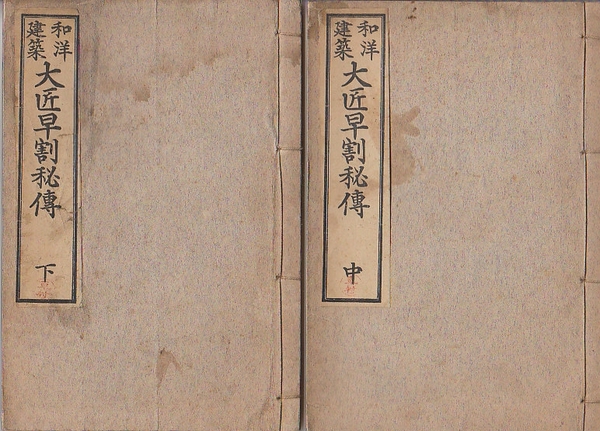 和洋
建築
大匠早割秘傳
中
和洋
建築
大匠早割秘傳
下